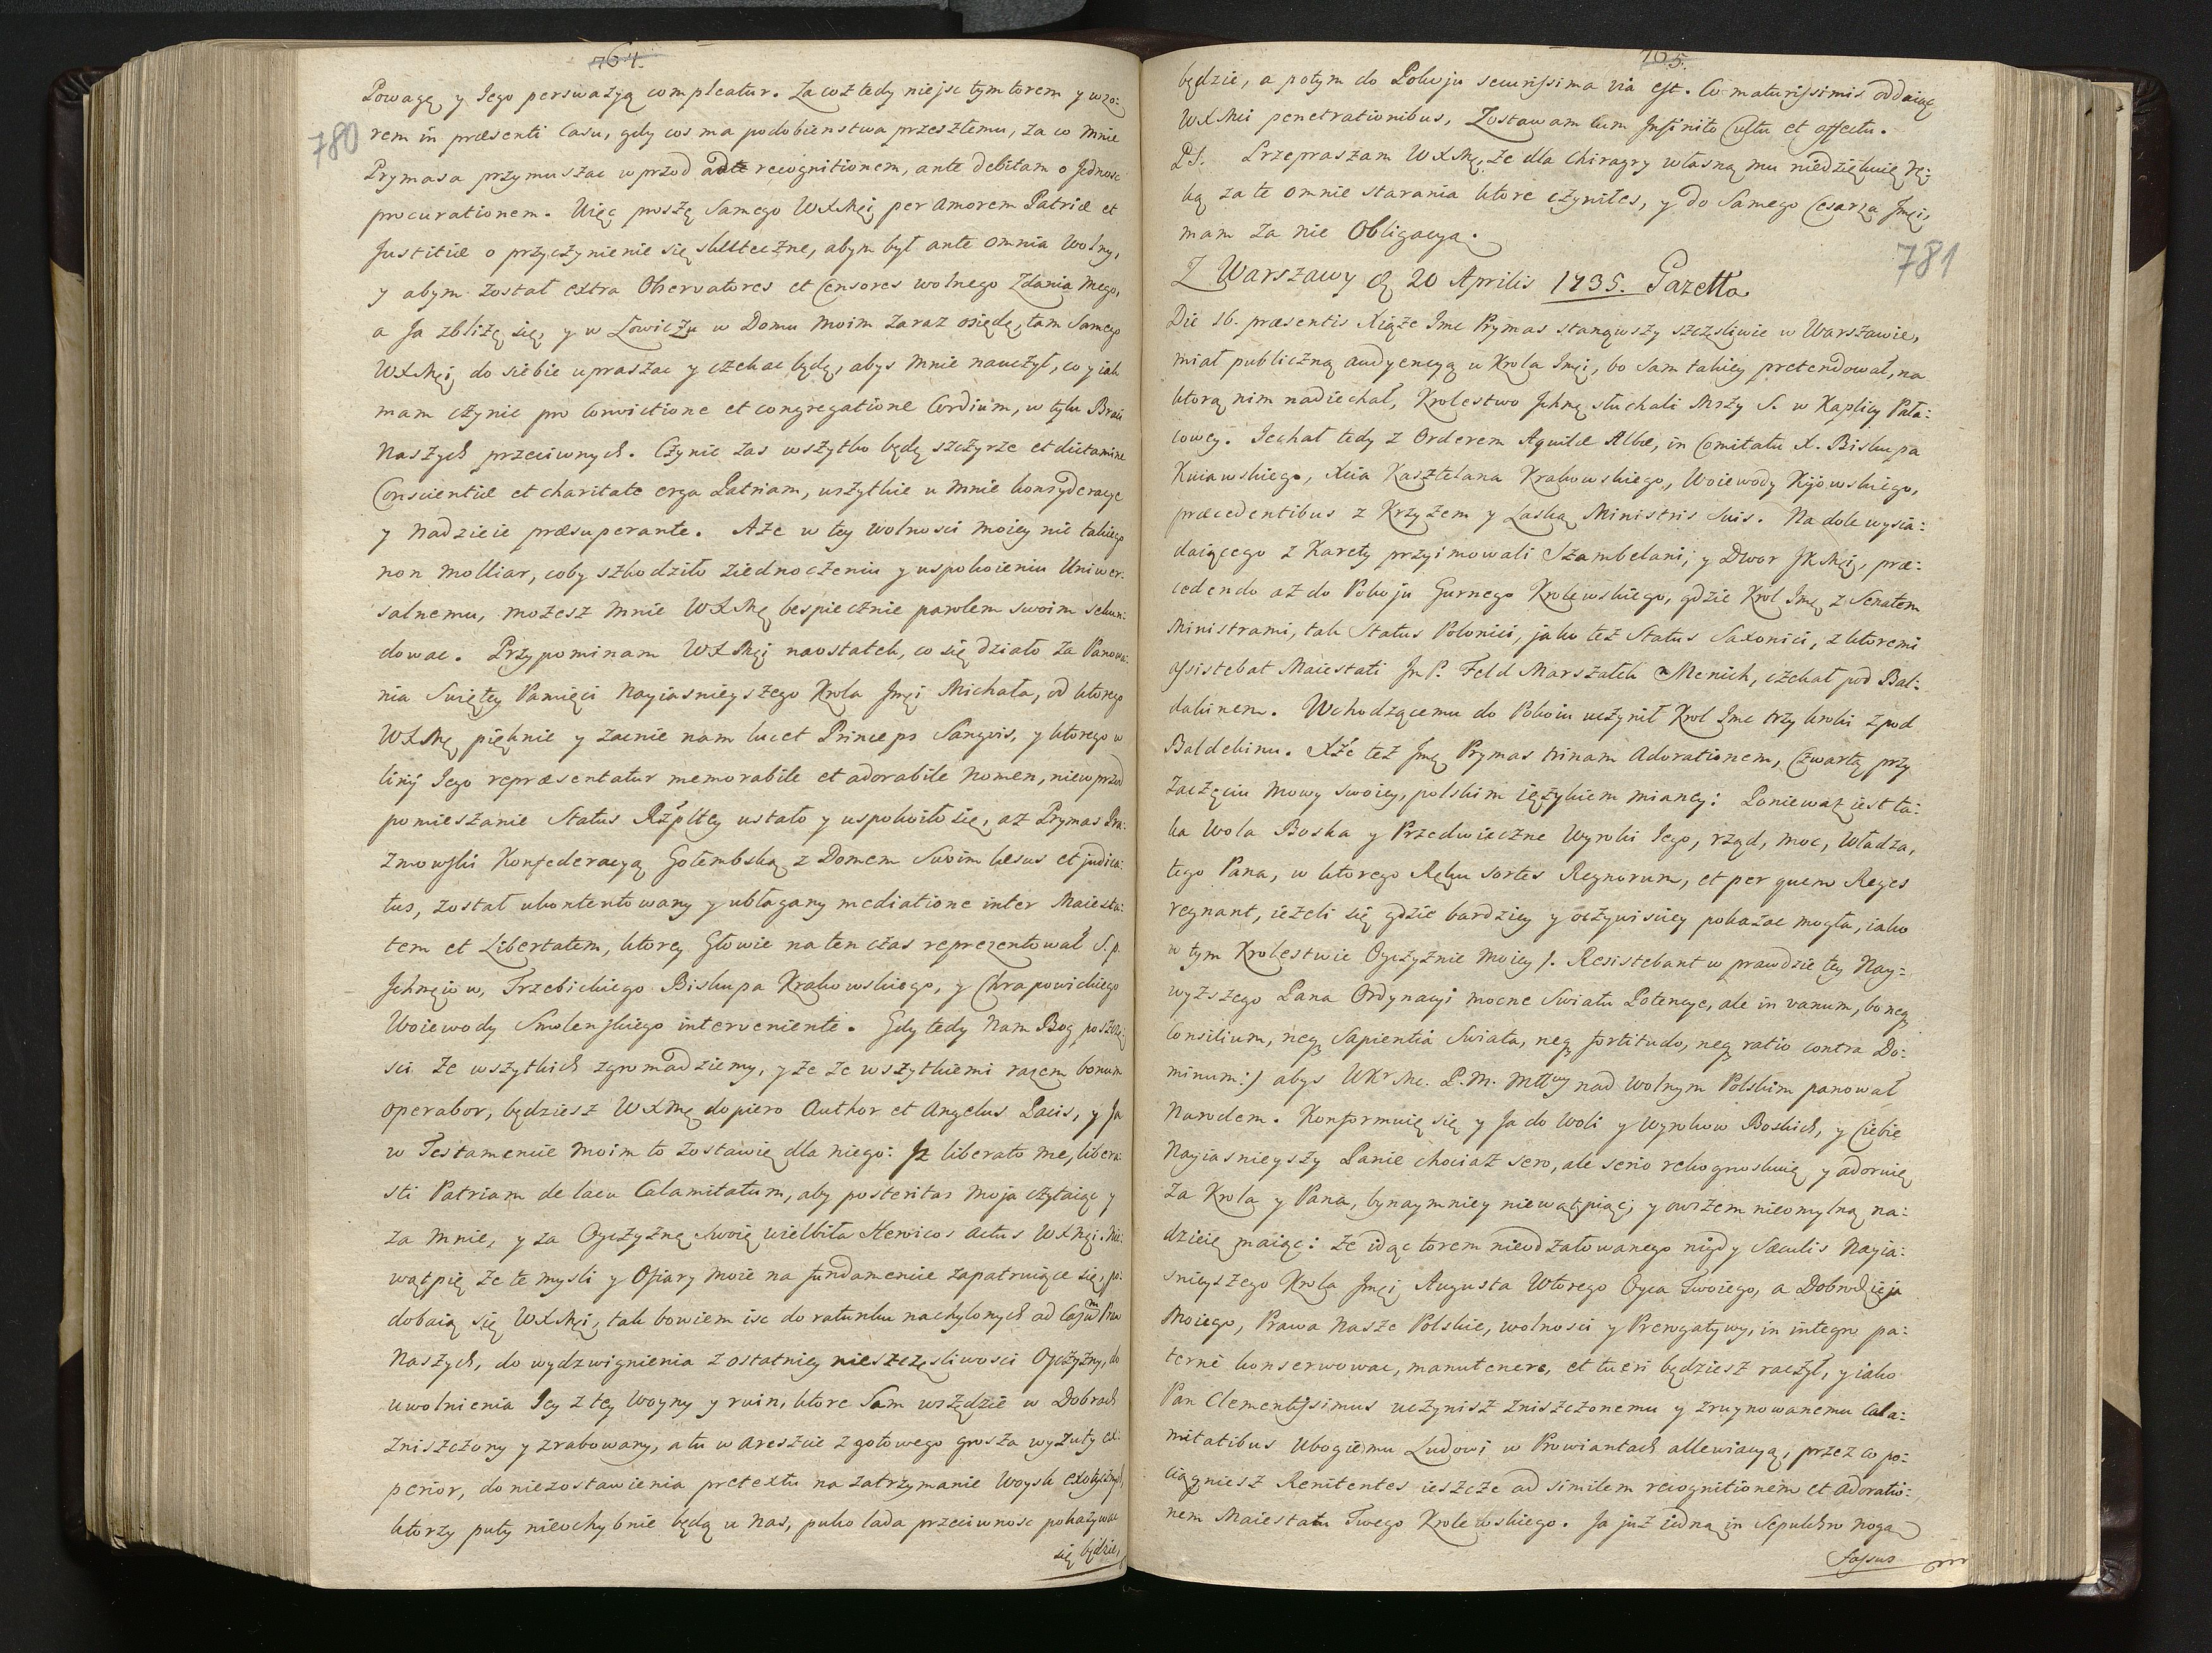 764.
780
Powagą y Jego perswazyą compleatur. Za coż tedy nie jsc tym torem y wzo:
rem in præsenti Casu, gdy cos ma podobienstwa przeszłemu, za co mnie
Prymasa przymuszac wprzod ad recognitionem, ante debitam o Jednosc
procurationem. Więc proszę Samego WXMci per Amorem Patriæ et
Justitiæ o przyczynienie się skuteczne, abym był ante omnia Wolny,
y abym został extra Observatores et Censores wolnego Zdania mego,
a Ja zbliżę się, y w Łowiczu w Domu moim zaraz osiędę, tam Samego
WXMci do siebie upraszac y czekac będę, abys mnie nauczył, co y iak
mam czynic pro Convictione et congregatione Cordium, w tylu Braci
Naszych przeciwnych. Czynic zas wszytko będę szczyrze et dictamine
Conscientiæ et charitate erga Patriam, wszytkie u mnie konsyderacye
y Nadzieie præsuperante. A że w tey wolnosci moiey nic takiego
non molliar, coby szkodziło ziednoczeniu y uspokoieniu Uniwer:
salnemu, możesz mnie WXMc bespiecznie parolem swoim sekun:
dowac. Przypominam WXMci naostatek, co się działo za Panowa:
nia Swiętey Pamięci Nayiasnieyszego Krola Jmci Michała, od ktorego
WXMc pięknie y zacnie nam lucet Princeps Sangvis, y ktorego w
linij Jego repræsentatur memorabile et adorabile Nomen, nie wprzod
pomieszanie Status Rzpltey ustało y uspokoiło się, aż Prymas Pra:
zmowski Konfederacyą Gołembską z Domem Swoim læsus et judica:
tus, został ukontentowany y ubłagany mediatione inter Maiesta:
tem et Libertatem, ktorey Głowie na ten czas reprezentował S. p.
Jchmciow, Trzebickiego Biskupa Krakowskiego, y Chrapowickiego
Woiewody Smolenskiego interveniente. Gdy tedy Nam Bog poszczę:
sci że wszytkich zgromadziemy, y że ze wszytkiemi razem bonum
operabor, będziesz WXMc dopiero Author et Angelus Pacis, y Ja
w Testamencie moim to zostawię dla niego: Jż liberato me, libera:
sti Patriam de lacu Calamitatum, aby posteritas moja czytaiąc y
za mnie, y za Oyczyznę Swoię wielbiła Heroicos actus WXMci. Nie
wątpię że te mysli y Ofiary moie na fundamencie zapatruiące się, po:
dobaią się WXMci, tak bowiem isc do ratunku nachylonych ad Casum Praw
Naszych, do wydzwignienia z ostatniey nieszczęsliwosci Oyczyzny, do
uwolnienia Jey z tey Woyny y ruin, ktore Sam wszędzie w Dobrach
zniszczony y zrabowany, a tu w areszcie z gotowego grosza wyzuty ex:
perior, do niezostawienia pretextu na zatrzymanie Woysk exotycznych,
ktorzy puty nieochybnie będą u Nas, puko lada przeciwnosc pokazywac
się będzie,
765.
będzie, a potym do Pokoju securissima via est. Co maturissimis oddaiąc
WXMci penetrationibus, Zostawam cum Infinito Cultu et affectu.
PS. Przepraszam WXMc, że dla Chiragry własną mu niedziękuię rę:
ką za te omnie starania ktore czyniłes, y do Samego Cesarza Jmci,
mam za nie Obligacyą.
781
Z Warszawy d 20 Aprilis 1735. Gazetta
Die 16. præsentis Xiąże Jmc Prymas stanąwszy szczęsliwie w Warszawie,
miał publiczną audyencyą u Krola Jmci, bo Sam takiey pretendował, na
ktorą nim nadiechał, Krolestwo Jchmc słuchali Mszy S. w Kaplicy Pała:
cowey. Jechał tedy z Orderem Aquilæ Albæ, in Comitatu X. Biskupa
Kuiawskiego, Xcia Kasztelana Krakowskiego, Woiewody Kijowskiego,
præcedentibus z Krzyżem y Laską Ministris Suis. Na dole wysia:
daiącego z Karety przyimowali Szambelani, y Dwor JKMci, præ:
cedendo aż do Pokoju Gurnego Krolewskiego, gdzie Krol Jmc z Senatem
Ministrami, tak Status Polonici, jako też Status Saxonici, z ktoremi
assistebat Maiestati Jn P. Feld Marszałek Menich, czekał pod Bal:
dakinem. Wchodzącemu do Pokoiu uczynił Krol Jmc trzy kroki z pod
Baldekinu. Xże też Jmc Prymas trinam Adorationem, Czwartą przy
Zaczęciu Mowy swoiey, polskim ięzykiem mianey: Ponieważ iest ta:
ka Wola Boska y Przedwieczne Wyroki Jego, rząd, moc, Władza,
tego Pana, w ktorego Ręku Sortes Regnorum, et per quem Reges
regnant, ieżeli się gdzie bardziey y oczywisciey pokazac mogła, iako
w tym Krolestwie Oyczyznie moiey /. Resistebant w prawdzie tey Nay:
wyższego Pana Ordynacyi mocne Swiatu Potencye, ale in vanum, bo neq
Consilium, neq Sapientia Swiata, neq fortitudo, neq ratio contra Do:
minum:) abys WKrMc. P. M. Mttwy nad Wolnym Polskim panował
Narodem. Konformuię się y Ja do Woli y Wyrokow Boskich, y Ciebie
Nayiasnieyszy Panie chociaż sero, ale serio rekognoskuię y adoruię
za Krola y Pana, bynaymniey niewątpiąc, y owszem nieomylną na:
dzieię maiąc: że idąc torem nieodzałowanego nigdy Sæculis Nayia:
snieyszego Krola Jmci Augusta Wtorego Oyca Twoiego, a Dobrodzieja
Moiego, Prawa Nasze Polskie, wolnosci y Prerogatywy, in integro pa:
terné konserwowac, manutenere, et tueri będziesz raczył, y iako
Pan Clementissimus uczynisz zniszczonemu y zruynowanemu Cala:
mitatibus Ubogiemu Ludowi w Prowiantach allewiacyą, przez co po:
ciągniesz Renitentes ieszcze ad similem recognitionem et adoratio:
nem Maiestatu Twego Krolewskiego. Ja już iedną in Sepulchro nogą
fassus